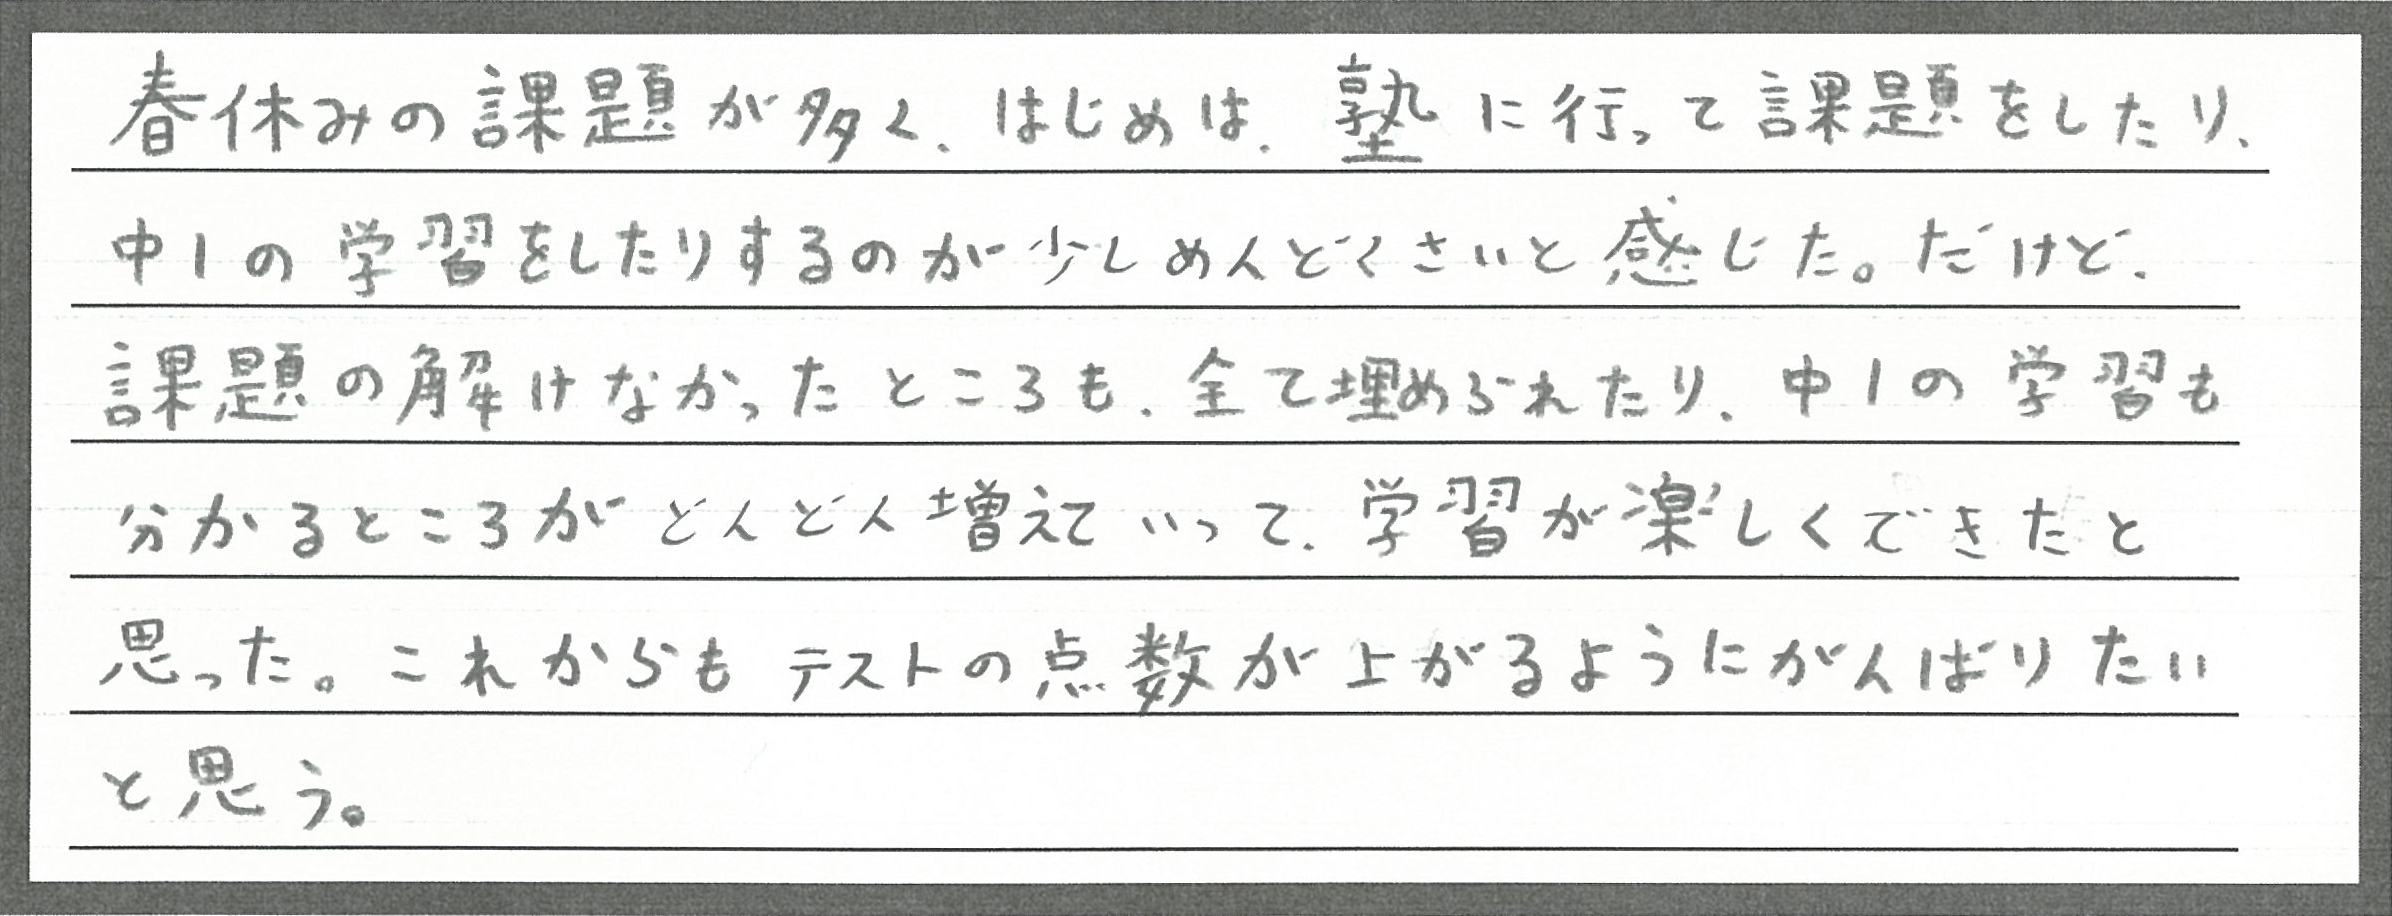 春休みの課題が多く、はじめは、塾に行って課題をしたり、
中1の学習をしたりするのが少しめんどくさいと感じた。だけど、
課題の解けなかったところも、全て埋められたり、中1の学習も
分かるところがどんどん増えていって、学習が楽しくできたと
思った。これからもテストの点数が上がるようにがんばりたい
と思う。